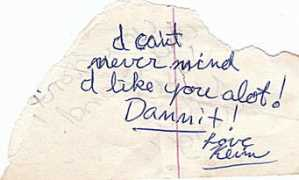 I can't
never mind
I like you alot!
Dannit!
Love
Kevin